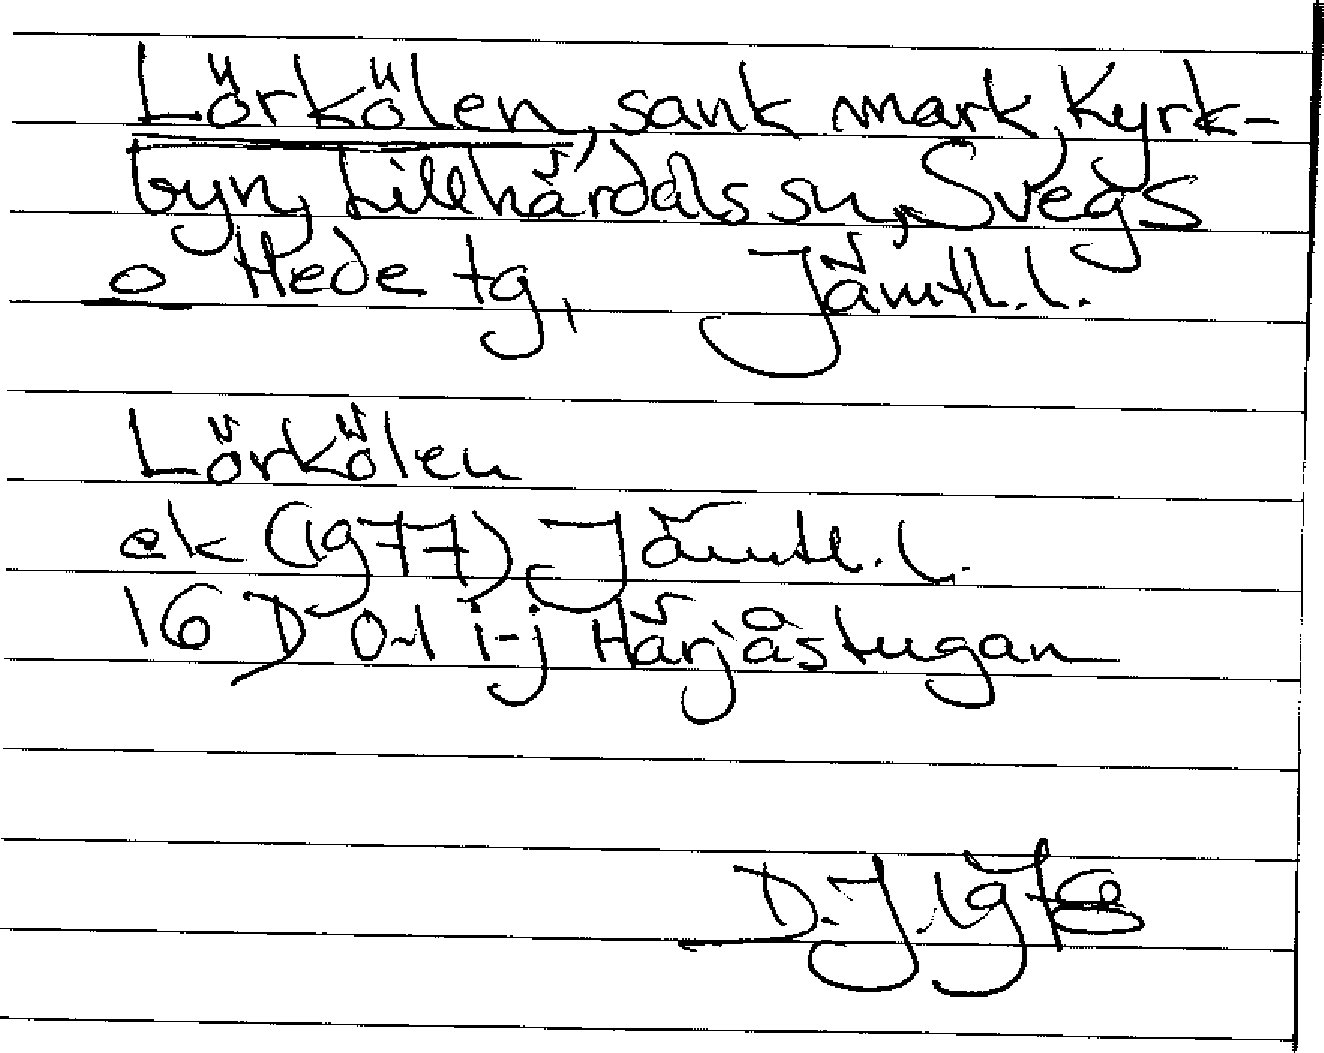 Lörkölen, sank mark, Kyrk-
byn, Lillhärdals sn, Svegs
o Hede tg, Jämtl. l.
Lörkölen
ek (1977) Jämtl. l.
16 D 0-1 i-j Härjåstugan
D.J. 1978